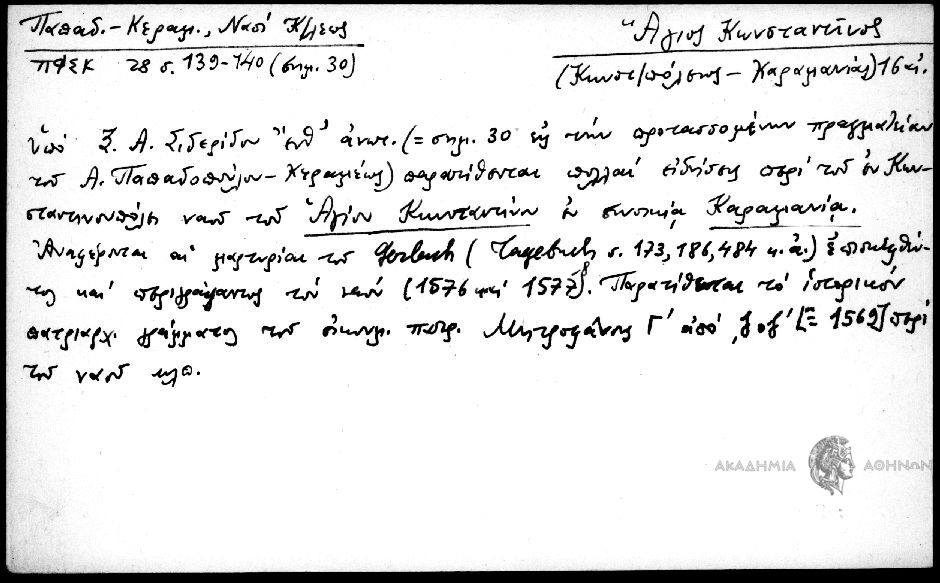 Παπαδ.-Κεραμ., Ναοί Κ/λεως
Ἅγιος Κωνσταντῖνος
ΠΦΣΚ 28 σ. 139-140 (σημ. 30)
(Κωνστ/πόλεως - Καραμανίας) 16 αἰ.
ὑπό Ξ. Α. Σιδερίδου ἔνθ' ἀνωτ. (= σημ. 30 εἰς τήν προτασσομένην πραγματείαν
τοῦ Α. Παπαδοπούλου-Κεραμέως) παρατίθενται πολλαί εἰδήσεις περί τοῦ ἐν Κων-
σταντινουπόλει ναοῦ τοῦ Ἁγίου Κωνσταντίνου ἐν συνοικίᾳ Καραμανίᾳ.
Ἀναφέρονται αἱ μαρτυρίαι τοῦ Gerlach (Tagebuch σ. 173, 186, 484 κ.ἀ.) ἐπισκεφθέν-
τος καί περιγράψαντος τόν ναόν (1576 καί 1577/8). Παρατίθεται τό ἱστορικόν
πατριαρχ. γράμματος τοῦ οἰκουμ. πατρ. Μητροφάνους Γ' ἀπό ͵ζοζ' [= 1569] περί
τοῦ ναοῦ κλπ.
ΑΚΑΔΗΜΙΑ ΑΘΗΝΩΝ